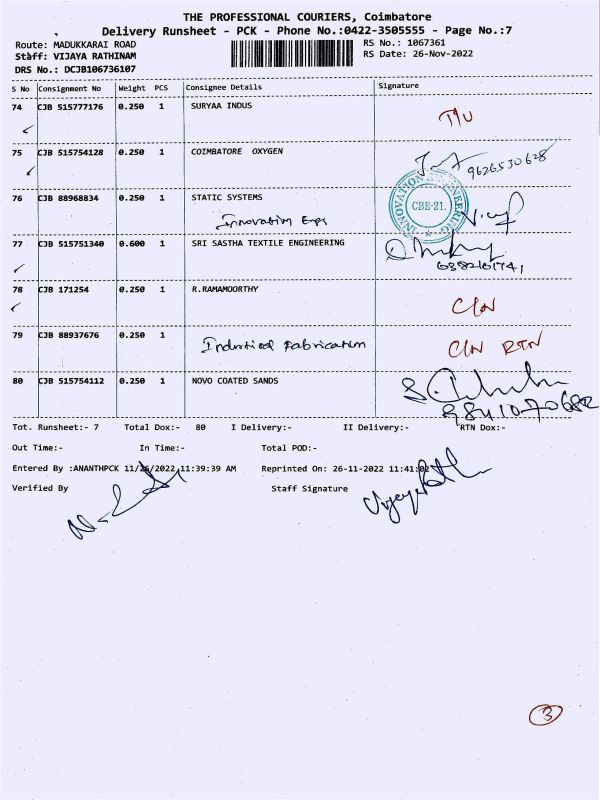 THE PROFESSIONAL COURIERS, Coimbatore
Delivery Runsheet - PCK - Phone No.:0422-3505555 - Page No.:7
Route: MADUKKARAI ROAD
RS No.: 1067361
Staff: VIJAYA RATHINAM
RS Date: 26-Nov-2022
DRS No.: DCJB106736107
S No Consignment No Weight PCS Consignee Details Signature
74 CJB 515777176 0.250 1 SURYAA INDUS
75 CJB 515754128 0.250 1 COIMBATORE OXYGEN
9626530628
76 CJB 88968834 0.250 1 STATIC SYSTEMS
Innovative Engs
INNOVATION ENGINEERING
CBE-21.
77 CJB 515751340 0.600 1 SRI SASTHA TEXTILE ENGINEERING
78 CJB 171254 0.250 1 R.RAMAMOORTHY
C/N
79 CJB 88937676 0.250 1 Industrial Fabrication C/N RTN
80 CJB 515754112 0.250 1 NOVO COATED SANDS
Tot. Runsheet:- 7 Total Dox:- 80 I Delivery:- II Delivery:- RTN Dox:-
Out Time:- In Time:- Total POD:-
Entered By :ANANTHPCK 11/26/2022,11:39:39 AM Reprinted On: 26-11-2022 11:41:02
Verified By Staff Signature
3